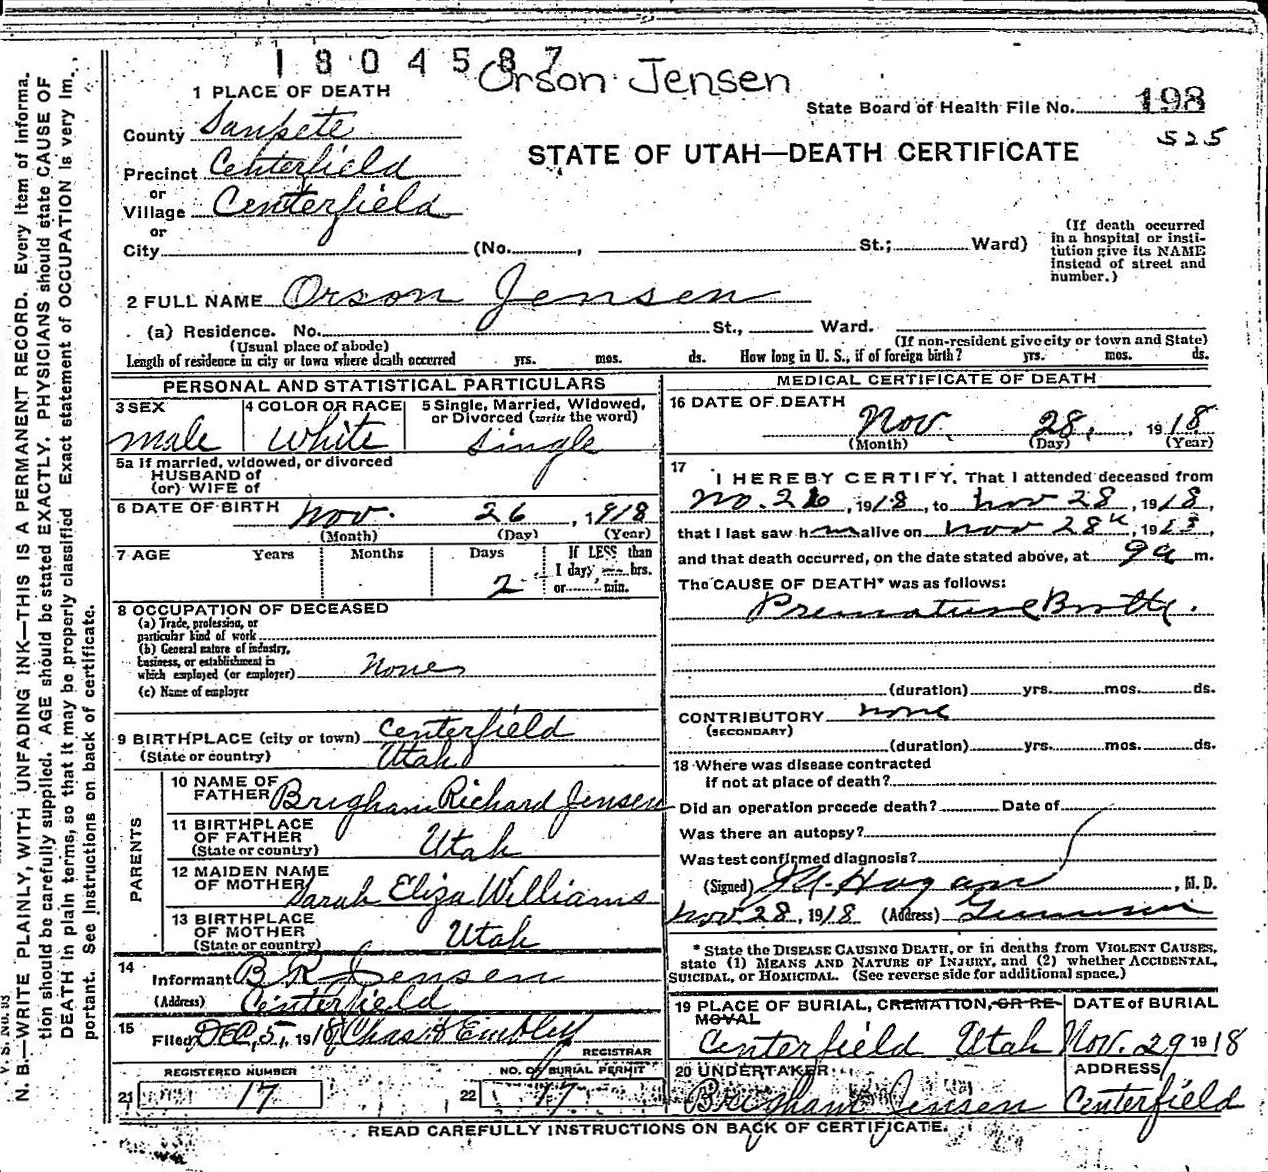 1804587
Orson Jensen
1 PLACE OF DEATH
State Board of Health File No. 198
525
County Sanpete
STATE OF UTAH—DEATH CERTIFICATE
Precinct Centerfield
or
Village Centerfield
or
City (No. , St.; Ward)
(If death occurred in a hospital or insti-
tution give its NAME
instead of street and
number.)
2 FULL NAME Orson Jensen
(a) Residence. No. St., Ward.
(Usual place of abode) (If non-resident give city or town and State)
Length of residence in city or town where death occurred yrs. mos. ds. How long in U. S., if of foreign birth? yrs. mos. ds.
PERSONAL AND STATISTICAL PARTICULARS
3 SEX male
4 COLOR OR RACE White
5 Single, Married, Widowed,
or Divorced (write the word)
Single
5a If married, widowed, or divorced
HUSBAND of
(or) WIFE of
6 DATE OF BIRTH Nov. 26, 1918
(Month) (Day) (Year)
7 AGE Years Months Days 2 If LESS than
1 day, hrs.
or min.
8 OCCUPATION OF DECEASED
(a) Trade, profession, or
particular kind of work
(b) General nature of industry,
business, or establishment in
which employed (or employer) None
(c) Name of employer
9 BIRTHPLACE (city or town) Centerfield
(State or country) Utah
PARENTS
10 NAME OF
FATHER Brigham Richard Jensen
11 BIRTHPLACE
OF FATHER
(State or country) Utah
12 MAIDEN NAME
OF MOTHER Sarah Eliza Williams
13 BIRTHPLACE
OF MOTHER
(State or country) Utah
14
Informant B R Jensen
(Address) Centerfield
15
Filed DEC, 5, 1918 Chas Embley
REGISTRAR
REGISTERED NUMBER
21 17
NO. OF BURIAL PERMIT
22 17
MEDICAL CERTIFICATE OF DEATH
16 DATE OF DEATH
Nov. 28, 1918
(Month) (Day) (Year)
17
I HEREBY CERTIFY, That I attended deceased from
No. 26, 1918, to Nov 28, 1918,
that I last saw h m alive on Nov 28, 19
and that death occurred, on the date stated above, at 9a m.
The CAUSE OF DEATH* was as follows:
Premature Birth.
(duration) yrs. mos. ds.
CONTRIBUTORY none
(SECONDARY)
(duration) yrs. mos. ds.
18 Where was disease contracted
if not at place of death?
Did an operation precede death? Date of
Was there an autopsy?
Was test confirmed diagnosis?
(Signed) Hagan, M. D.
Nov 28, 1918 (Address) Gunnison
* State the DISEASE CAUSING DEATH, or in deaths from VIOLENT CAUSES,
state (1) MEANS AND NATURE OF INJURY, and (2) whether ACCIDENTAL,
SUICIDAL, or HOMICIDAL. (See reverse side for additional space.)
19 PLACE OF BURIAL, CREMATION, OR RE-
MOVAL
Centerfield Utah
DATE of BURIAL
Nov. 29 1918
20 UNDERTAKER
Brigham Jensen
ADDRESS
Centerfield
READ CAREFULLY INSTRUCTIONS ON BACK OF CERTIFICATE.
N. B.—WRITE PLAINLY, WITH UNFADING INK—THIS IS A PERMANENT RECORD. Every item of informa-
tion should be carefully supplied. AGE should be stated EXACTLY. PHYSICIANS should state CAUSE OF
DEATH in plain terms, so that it may be properly classified. Exact statement of OCCUPATION is very im-
portant. See Instructions on back of certificate.